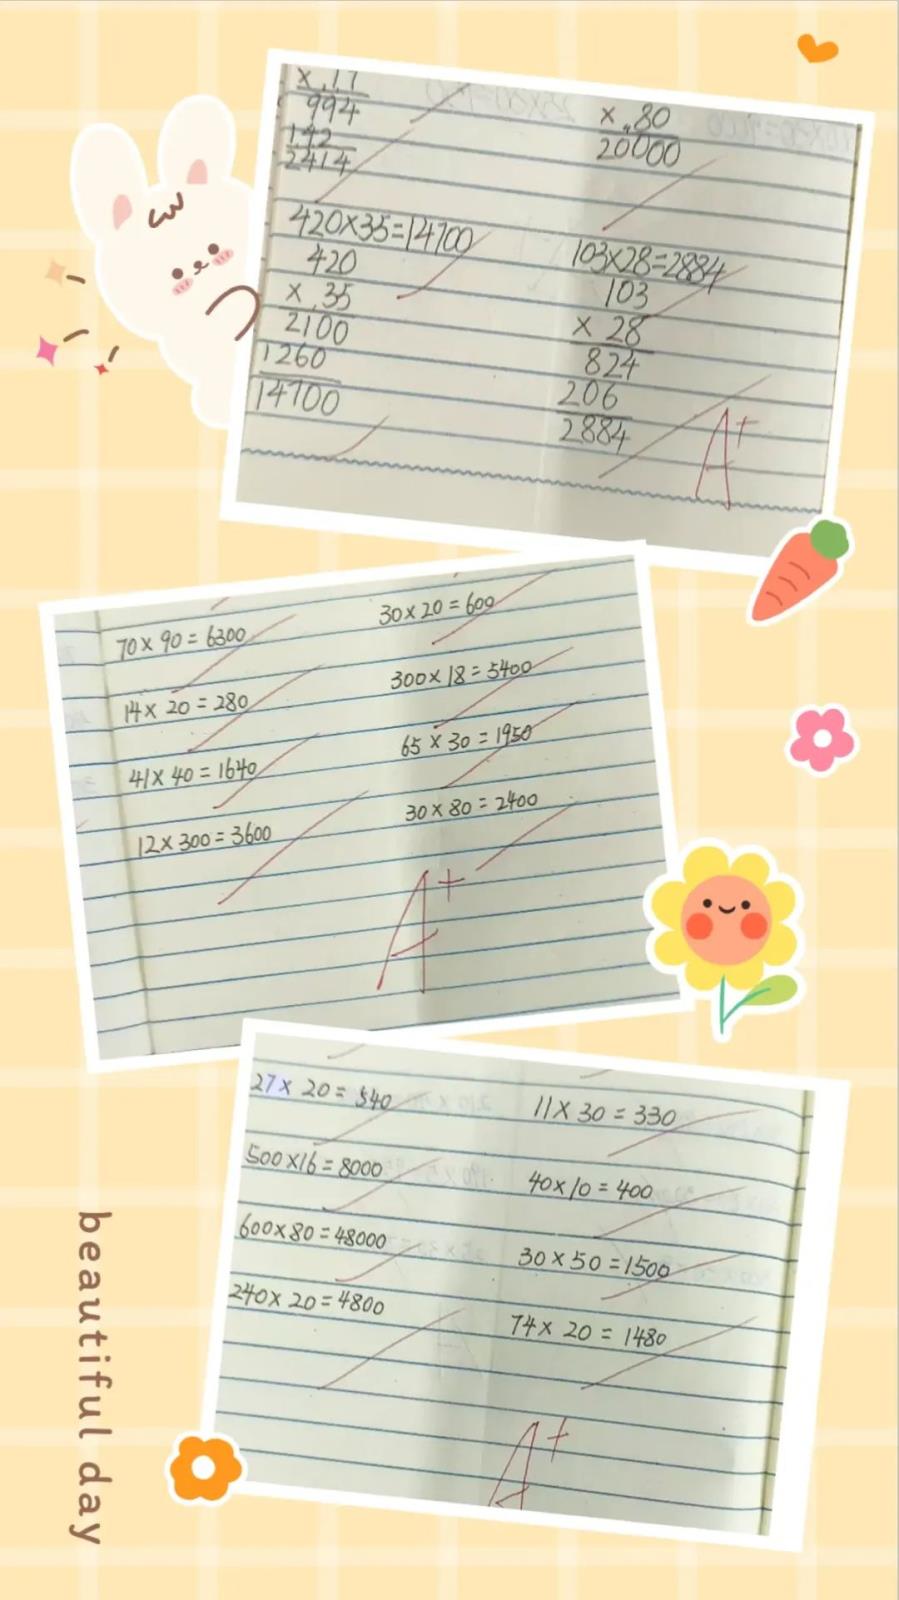 × 17
994
142
2414
× 80
20000
420×35=14700
420
× 35
2100
1260
14700
103×28=2884
103
× 28
824
206
2884
A+
70×90=6300
30×20=600
14×20=280
300×18=5400
41×40=1640
65×30=1950
12×300=3600
30×80=2400
A+
27×20=540
11×30=330
500×16=8000
40×10=400
600×80=48000
30×50=1500
240×20=4800
74×20=1480
A+
beautiful day